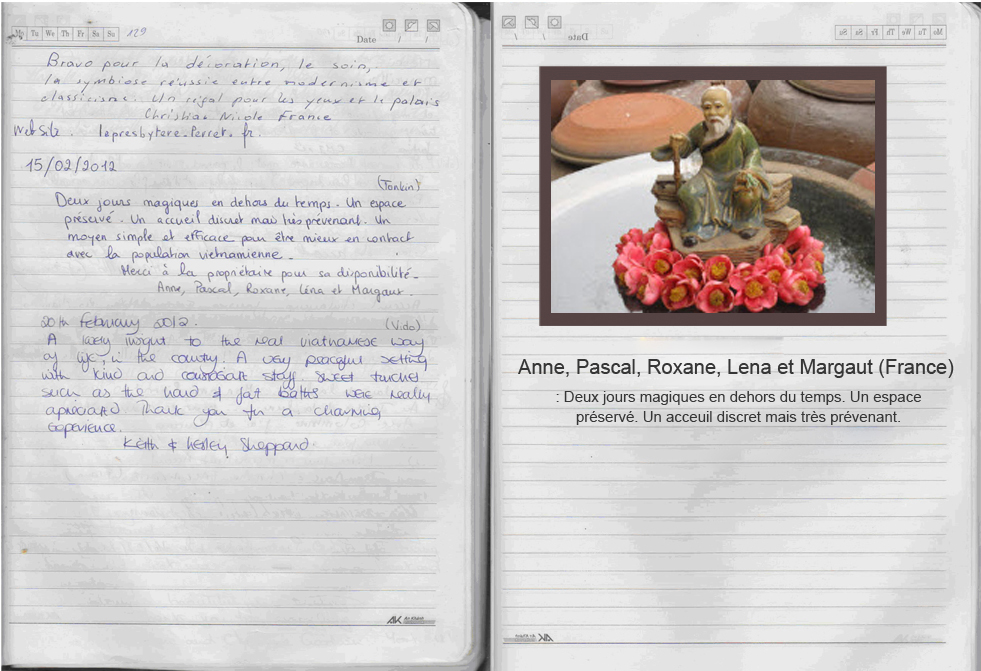 Mo Tu We Th Fr Sa Su 129
Date / /
Bravo pour la décoration, le soin,
la symbiose réussie entre modernisme et
classicisme. Un régal pour les yeux et le palais
Christian Nicole France
Web Site. lepresbytere-Perret.fr.
15/02/2012
(Tonkin)
Deux jours magiques en dehors du temps. Un espace
préservé. Un accueil discret mais très prévenant. Un
moyen simple et efficace pour être mieux en contact
avec la population vietnamienne.
Merci à la propriétaire pour sa disponibilité.
Anne, Pascal, Roxane, Léna et Margaut.
20th February 2012.
(Vido)
A lovely insight to the real vietnamese way
of life in the country. A very peaceful setting
with kind and staff sweet touches
such as the hand & foot baths were really
apreciated Thank you for a charming
experience.
Keith & Lesley Sheppard.
AK An Khánh
Date / /
Mo Tu We Th Fr Sa Su
Anne, Pascal, Roxane, Lena et Margaut (France)
: Deux jours magiques en dehors du temps. Un espace
préservé. Un acceuil discret mais très prévenant.
AK